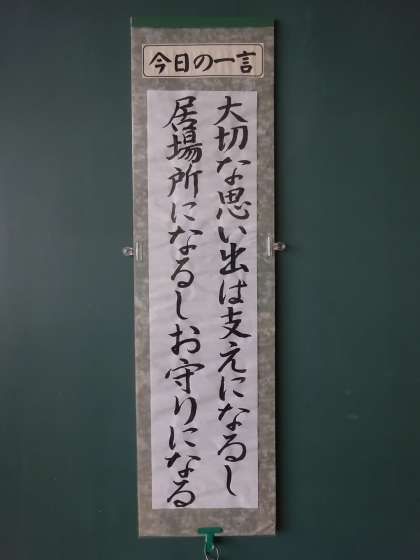 今日の一言
大切な思い出は支えになるし
居場所になるしお守りになる